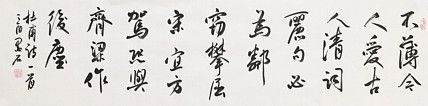 不薄今
人愛古
人清詞
麗句必
為鄰
竊攀屈
宋宜方
駕恐與
齊梁作
後塵
杜甫詩一首